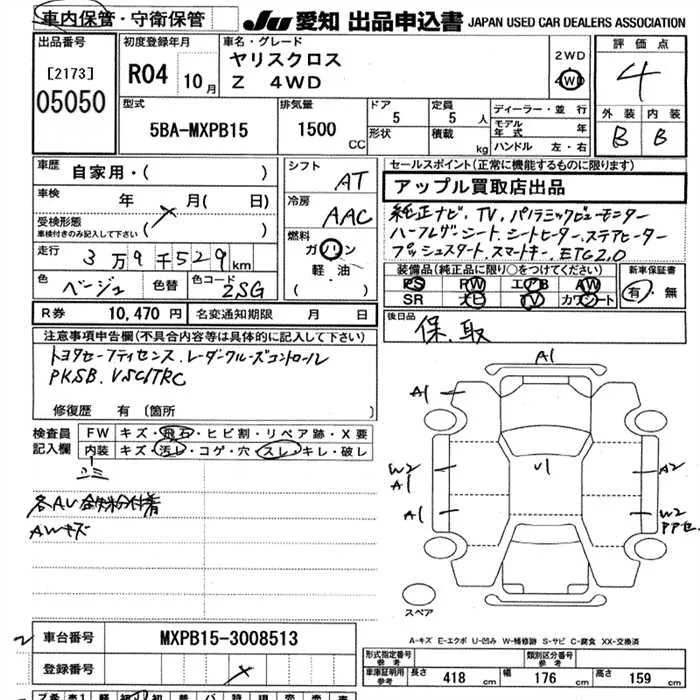 車内保管・守衛保管
JU 愛知 出品申込書 JAPAN USED CAR DEALERS ASSOCIATION
出品番号
[2173]
05050
初度登録年月
R04 10月
車名・グレード
ヤリスクロス
Z 4WD
2WD
4WD
評価点
4
外装 内装
B B
型式
5BA-MXPB15
排気量
1500
CC
ドア
5
形状
定員
5 人
積載
kg
ディーラー・並行
モデル年式 年
ハンドル 左・右
車歴 自家用・( )
車検 年 月( 日)
受検形態
車検付きのみ記入して下さい ( )
走行 3万9千529km
色 ベージュ 色替 色コード 2SG
R券 10,470 円 名変通知期限 月 日
シフト
AT
冷房
AAC
燃料
ガソリン
軽・油
( )
セールスポイント(正常に機能するものに限ります)
アップル買取店出品
純正ナビ、TV、パノラミックビューモニター
ハーフレザーシート、シートヒーター、ステアヒーター
プッシュスタート、スマートキー、ETC2.0
装備品(純正品に限り○をつけてください)
PS PW エアB AW
SR ナビ TV カワシート
新車保証書
有・無
後日品
保、取
注意事項申告欄(不具合内容等は具体的に記入して下さい)
トヨタセーフティセンス、レーダークルーズコントロール
PKSB、VSC/TRC
修復歴 有 〔箇所 〕
検査員
記入欄
FW キズ・飛石・ヒビ割・リペア跡・X要
内装 キズ・汚レ・コゲ・穴・スレ・キレ・破レ
AWキズ
A1
A1
W2
A1
U1
A2
A1
W2
スペア
A-キズ E-エクボ U-凹み W-補修跡 S-サビ C-腐食 XX-交換済
車台番号 MXPB15-3008513
登録番号
型式指定番号
参考
類別区分番号
参考
車庫証明用
参考
長さ 418 cm 幅 176 cm 高さ 159 cm